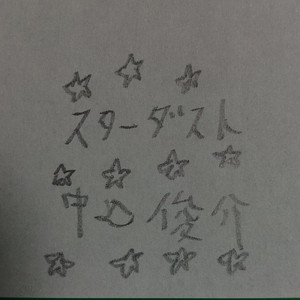 スターダスト
中込俊介